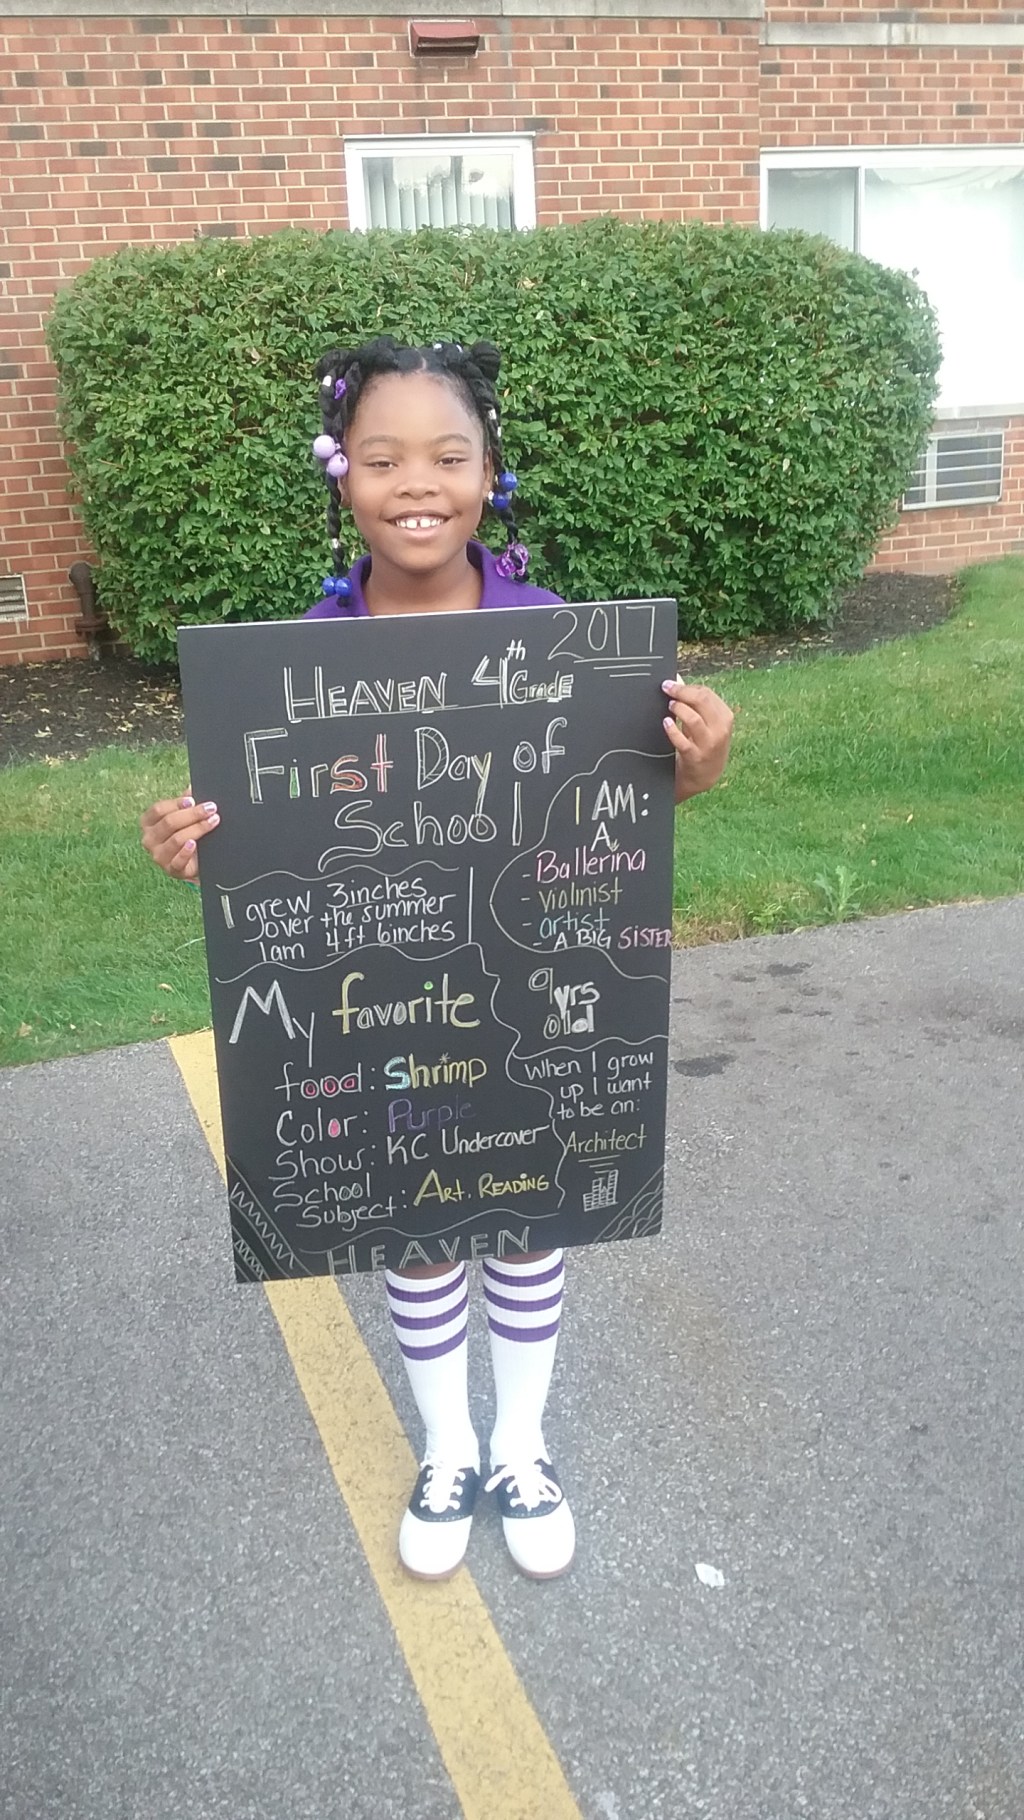 2017
HEAVEN 4th GradE
First Day of
School
I grew 3inches
over the summer
I am 4ft 6inches
I AM:
A
- Ballerina
- violinist
- artist
- A BIG SISTER
My favorite
food: Shrimp
Color: Purple
Show: KC Undercover
School
Subject: Art. READING
9
yrs
old
When I grow
up I want
to be an:
Architect
HEAVEN